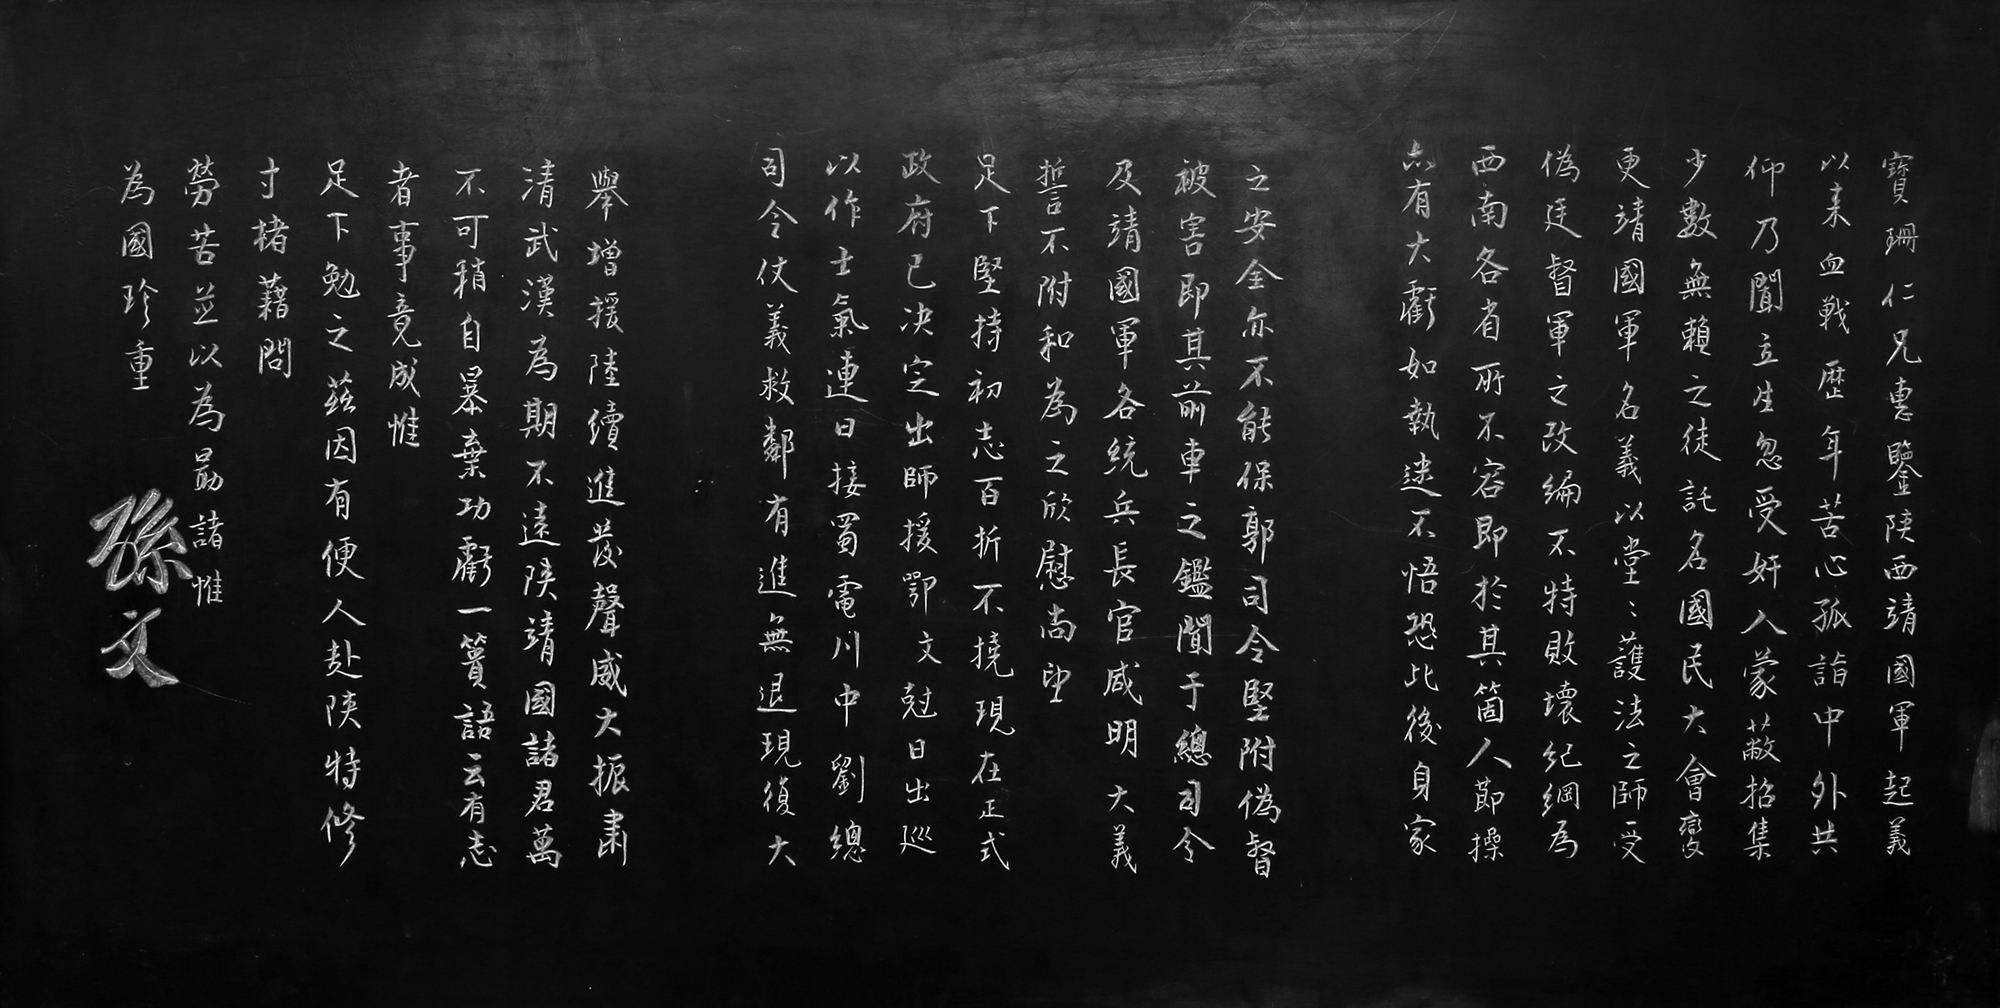 寶珊仁兄惠鑒陝西靖國軍起義
以来血戰歷年苦心孤詣中外共
仰乃聞立生忽受奸人蒙蔽招集
少數無賴之徒託名國民大會變
更靖國軍名義以堂〻護法之師受
偽廷督軍之改編不特敗壞紀綱為
西南各省所不容即於其箇人節操
亦有大虧如執迷不悟恐此後身家
之安全亦不能保郭司令堅附偽督
被害即其前車之鑑聞于總司令
及靖國軍各統兵長官咸明大義
誓言不附和為之欣慰尚望
足下堅持初志百折不撓現在正式
政府已决定出師援鄂文尅日出巡
以作士氣連日接蜀電川中劉總
司令仗義救鄰有進無退現復大
舉增援陸續進發聲威大振肅
清武漢為期不遠陝靖國諸君萬
不可稍自暴棄功虧一簣語云有志
者事竟成惟
足下勉之茲因有便人赴陝特修
寸楮藉問
勞苦並以為勗諸惟
為國珍重
孫文